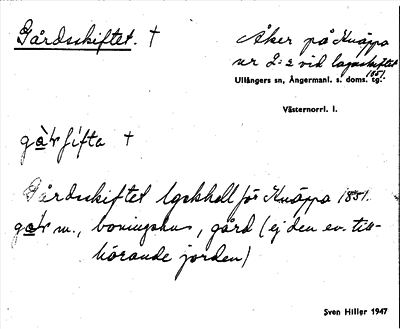 Gårdsskiftet. †
Åker på Knäppa
nr 2:2 vid lagaskiftet
1851.
Ullångers sn, Ångermanl. s. doms. tg.
Västernorrl. l.
†
Gårdsskiftet för Knäppa 1851.
m., boningshus, gård (ej den ev. till-
hörande jorden)
Sven Hiller 1947